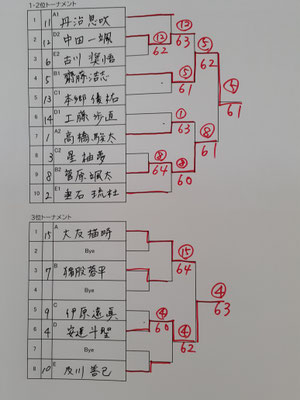 1・2位トーナメント
1 11 A1 丹治
2 12 D2 中田一颯
3 6 E2 古川
4 5 B1 齋藤浩志
5 13 C1 本郷
6 14 D1 工藤歩道
7 1 A2 高橋駿太
8 3 C2 星柚夢
9 8 B2 菅原颯太
10 2 E1 重石琉杜
⑫ 62
⑬ 63
⑤ 61
⑤ 62
① 63
⑧ 64
60
⑧ 61
61
3位トーナメント
1 15 A 大友
2 Bye
3 7 B 蓉平
4 Bye
5 9 C 伊原
6 4 D 安達斗聖
7 Bye
8 10 E 及川善己
⑮ 64
④ 60
④ 62
④ 63